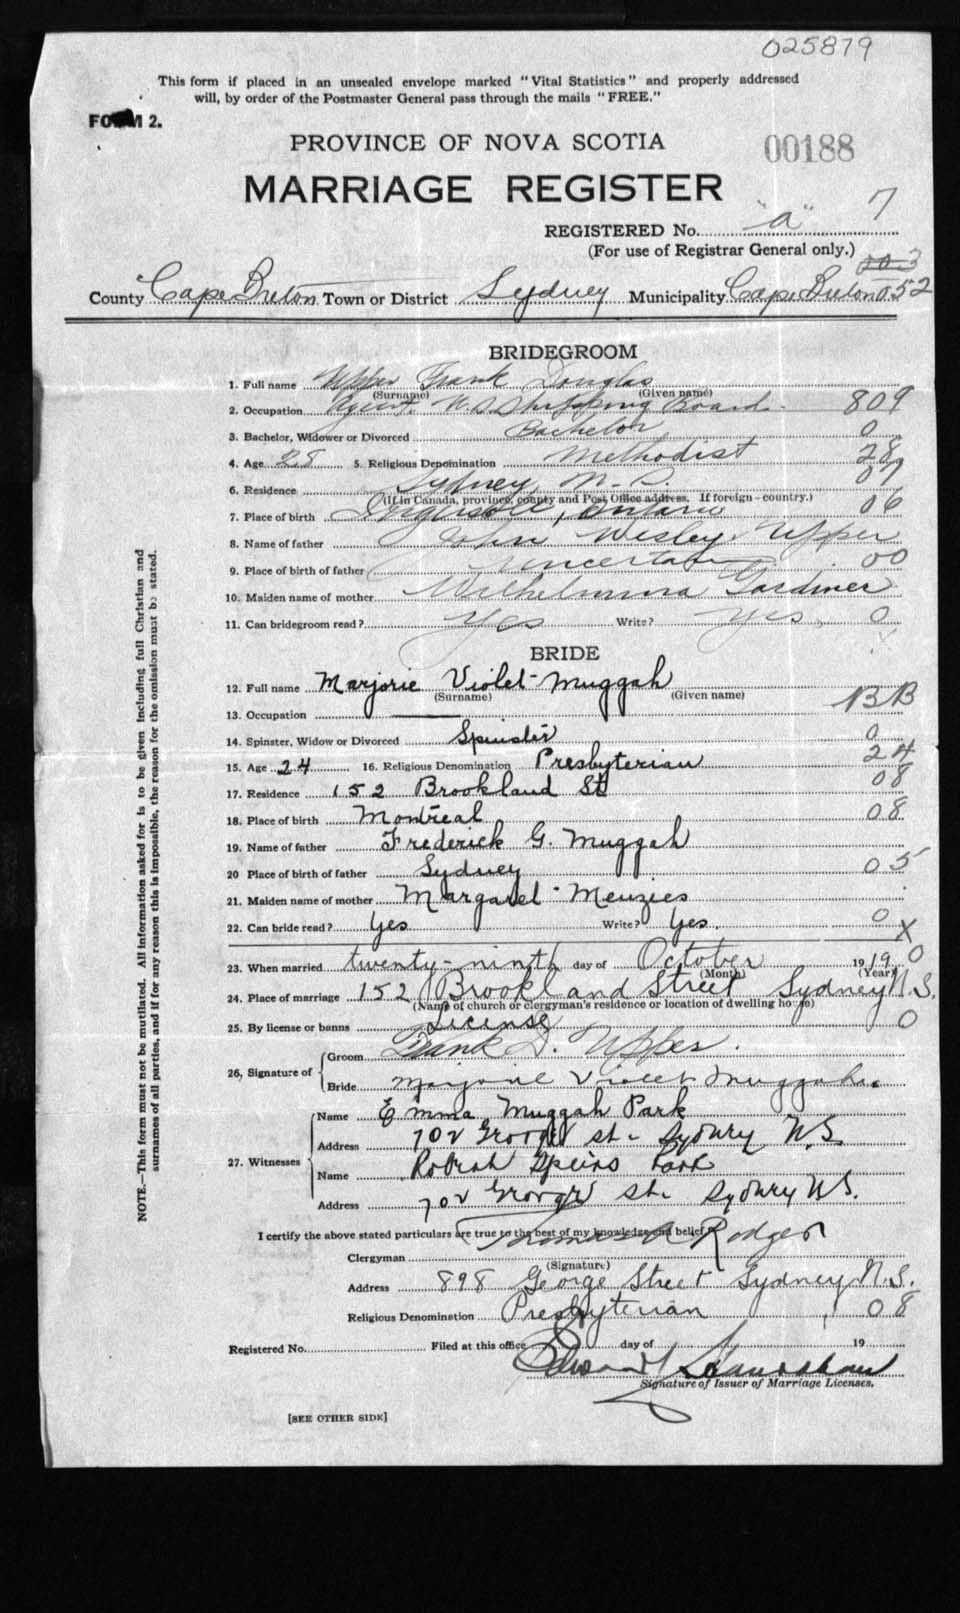 025879
This form if placed in an unsealed envelope marked "Vital Statistics" and properly addressed
will, by order of the Postmaster General pass through the mails "FREE."
FORM 2.
PROVINCE OF NOVA SCOTIA
00188
MARRIAGE REGISTER
REGISTERED No. "a" 7
(For use of Registrar General only.)
003
County Cape Breton Town or District Sydney Municipality Cape Breton 052
BRIDEGROOM
1. Full name Upper Frank Douglas
(Surname) (Given name)
2. Occupation Agent. U.S. Shipping Board. 809
3. Bachelor, Widower or Divorced Bachelor 0
4. Age 28 5. Religious Denomination Methodist 28
6. Residence Sydney, N.S. 07
(If in Canada, province, county and Post Office address. If foreign - country.)
7. Place of birth Ingersoll, Ontario 06
8. Name of father John Wesley Upper
9. Place of birth of father Uncertain 00
10. Maiden name of mother Wilhelmina Gardiner
11. Can bridegroom read? Yes Write? Yes. 0
BRIDE
12. Full name Marjorie Violet Muggah
(Surname) (Given name)
13. Occupation BB
14. Spinster, Widow or Divorced Spinster 0
15. Age 24 16. Religious Denomination Presbyterian 24
17. Residence 152 Brookland St 08
18. Place of birth Montreal 08
19. Name of father Frederick G. Muggah
20 Place of birth of father Sydney 05
21. Maiden name of mother Margaret Menzies
22. Can bride read? Yes Write? Yes. 0
X
23. When married twenty-ninth day of October 1919 0
(Month) (Year)
24. Place of marriage 152 Brookland Street Sydney N.S.
(Name of church or clergyman's residence or location of dwelling house)
25. By license or banns License 0
26. Signature of Groom Frank D. Upper.
Bride Marjorie Violet Muggah.
27. Witnesses Name Emma Muggah Park
Address 702 George St. Sydney N.S.
Name Park
Address 702 George St. Sydney N.S.
I certify the above stated particulars are true to the best of my knowledge and belief.
Clergyman Thomas Rodger
(Signature)
Address 898 George Street Sydney N.S.
Religious Denomination Presbyterian 08
Registered No. Filed at this office day of 19
Edward
Signature of Issuer of Marriage Licenses.
[SEE OTHER SIDE]
NOTE.—This form must not be mutilated. All information asked for is to be given including full Christian and
surnames of all parties, and if for any reason this is impossible, the reason for the omission must be stated.